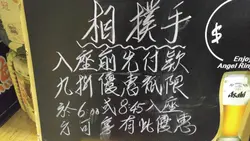 相撲手
入座前先付款
九折優惠祗限
於6:00或8:45入座
方可享有此優惠
$
Enjoy
Angel Rin
Asahi